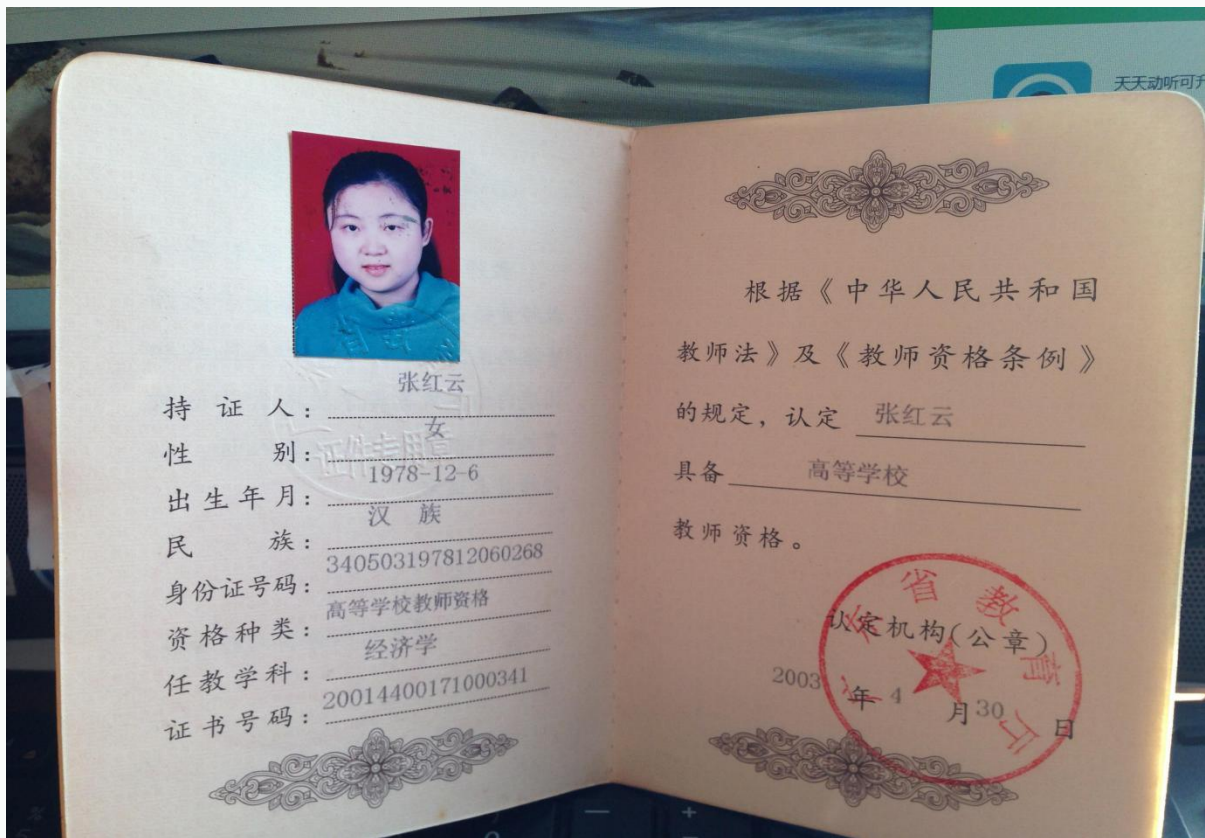 天天动听可升
持 证 人：张红云
性 别：女
出生年月：1978-12-6
民 族：汉 族
身份证号码：340503197812060268
资格种类：高等学校教师资格
任教学科：经济学
证书号码：20014400171000341
证件专用章
根据《中华人民共和国
教师法》及《教师资格条例》
的规定，认定 张红云
具备 高等学校
教师资格。
广东省教育厅
认定机构(公章)
2003 年 4 月 30 日